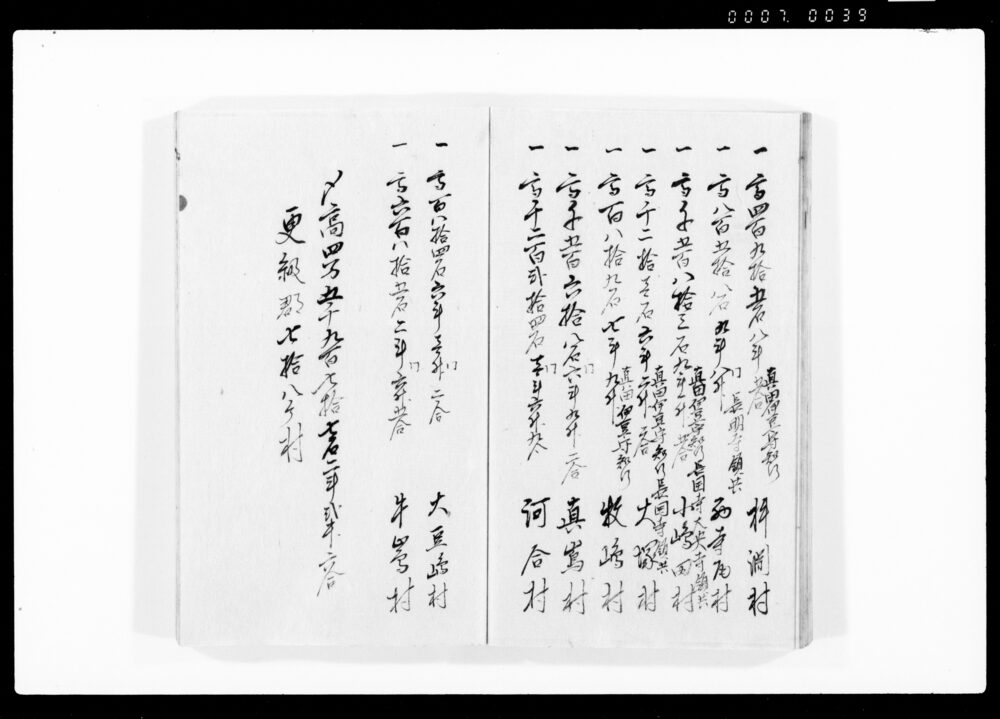 0007. 0039
一 高四百九拾五石八斗五合 真田伊豆守知行 杵淵村
一 高八百五拾八石九斗八升 長明寺領共 西寺尾村
一 高千五百八拾三石九斗 真田伊豆守知行長国寺大英寺領共 小嶋田村
一 高千二拾壱石六斗二升二合 真田伊豆守知行長国寺領共 大塚村
一 高百八拾九石七斗九升 真田伊豆守知行 牧嶋村
一 高千五百六拾八石六斗九升二合 同 真嶌村
一 高千二百弐拾四石壱斗六升九合 同 河合村
一 高百八拾四石六斗壱升二合 同 大豆嶋村
一 高六百八拾五石二斗六升五合 同 牛嶌村
〆高四万五千九百七拾七石二斗弐升六合
更級郡七拾八ケ村